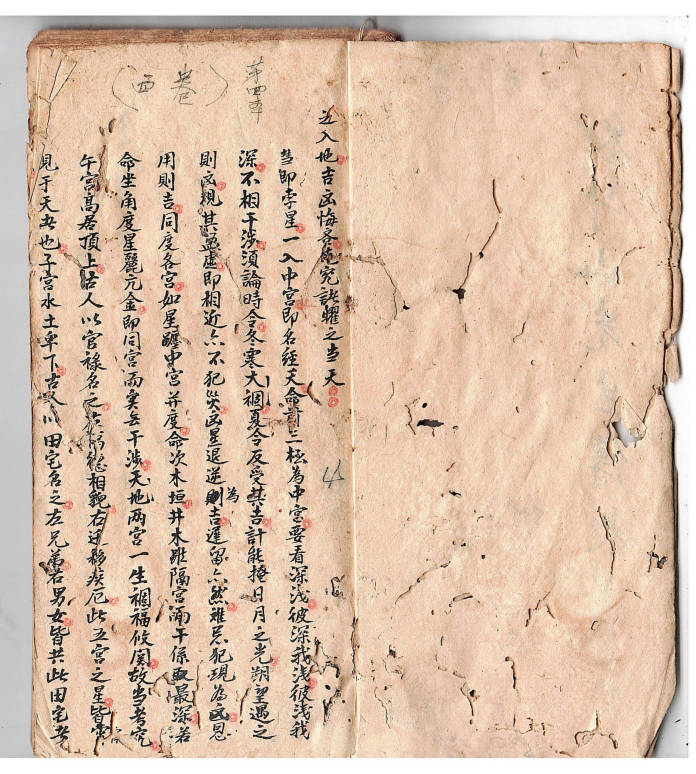 第四本
（西卷）
入地吉凶悔吝先究訣曜之当天
即孛星一入中宫即名經天命前三極為中宫要看深浅彼深我浅彼浅我
深不相干涉須論時令冬寒大禍夏令反受其吉計能掩日月之光朔望遇之
則凶親其盈虚即相近亦不犯災凶星退逆則為吉遲留亦然雖忌犯現為凶恩
用則吉同度各宫如星躔中宫并度命次木垣井木雖隔宫而干係最深若
命坐角度星麗亢金即同宫而实无干涉天地两宫一生禍福攸関故当考究
午宫高居頂上古人以官禄名之左福德相貌右迁移疾厄此五宫之星皆
見于天者也子宫水土卑下古人以田宅名之左兄弟右男女皆共此田宅者